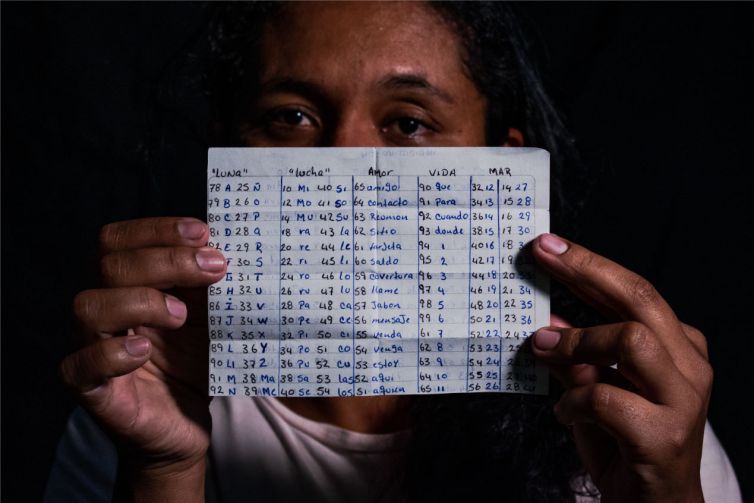 "LUNA" "Lucha" Amor ViDA MAR
78 A 25 Ñ 10 Mi 40 Si 65 amigo 90 que 32 12 14 27
79 B 26 O 12 Mo 41 So 64 contacto 91 para 34 13 15 28
80 C 27 P 14 MU 42 SU 63 Reunion 92 cuando 36 14 16 29
81 D 28 Q 18 ra 43 la 62 Sitio 93 donde 38 15 17 30
E 29 R 20 re 44 le 61 tarjeta 94 1 40 16 18
30 S 22 ri 45 Li 60 saldo 95 2 42 17 19
31 T 24 ro 46 lo 59 covertura 96 3 44 18 20
85 H 32 U 26 ru 47 lu 58 llame 97 4 46 19 21 34
86 I 33 V 28 Pa 48 ca 57 Jabon 98 5 48 20 22 35
87 J 34 W 30 Pe 49 ce 56 mensaje 99 6 50 21 23 36
88 K 35 X 32 Pi 50 ci 55 venda 61 7 52 22 24
89 L 36 Y 34 Po 51 co 54 venga 62 8 53 23
90 Ll 37 Z 36 Pu 52 cu 53 estoy 63 9 54 24
91 M 38 Ma 38 Sa 53 las 52 aqui 64 10 55 25
92 N 39 Me 40 Se 54 los 51 aquien 65 11 56 26 28